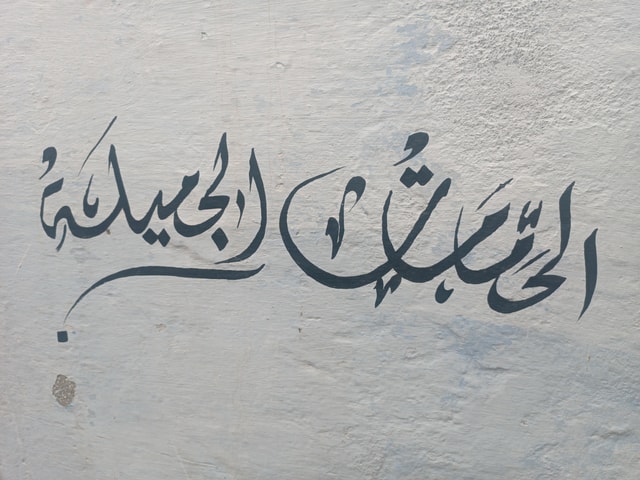 الحمّامات الجميلة